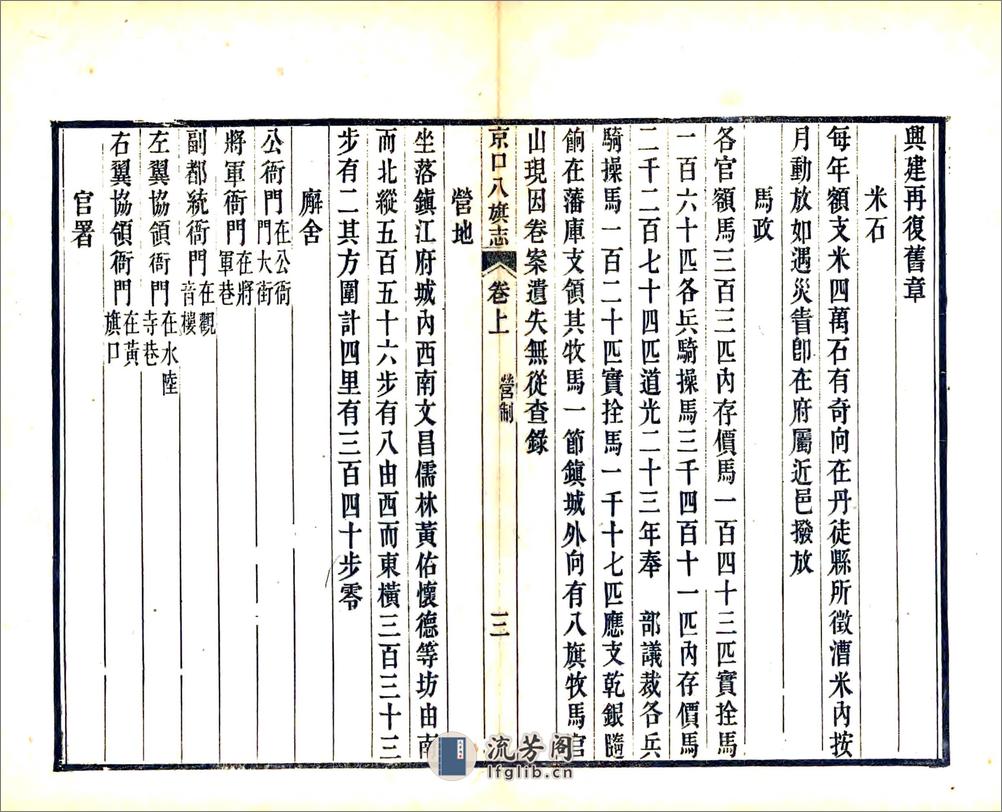 興建再復舊章
米石
每年額支米四萬石有奇向在丹徒縣所徵漕米內按
月動放如遇災眚卽在府屬近邑撥放
馬政
各官額馬三百三匹內存價馬一百四十三匹實拴馬
一百六十匹各兵騎操馬三千四百十一匹內存價馬
二千二百七十四匹道光二十三年奉　部議裁各兵
騎操馬一百二十匹實拴馬一千十七匹應支乾銀隨
餉在藩庫支領其牧馬一節鎮城外向有八旗牧馬官
山現因卷案遺失無從查錄
京口八旗志　卷上　營制　三
營地
坐落鎮江府城內西南文昌儒林黃佑懷德等坊由南
而北縱五百五十六步有八由西而東橫三百三十三
步有二其方圍計四里有三百四十步零
廨舍
公衙門在公衙門大街
將軍衙門在將軍巷
副都統衙門在觀音樓
左翼協領衙門在水陸寺巷
右翼協領衙門在黃旗口
官署
流芳阁
lfglib.cn